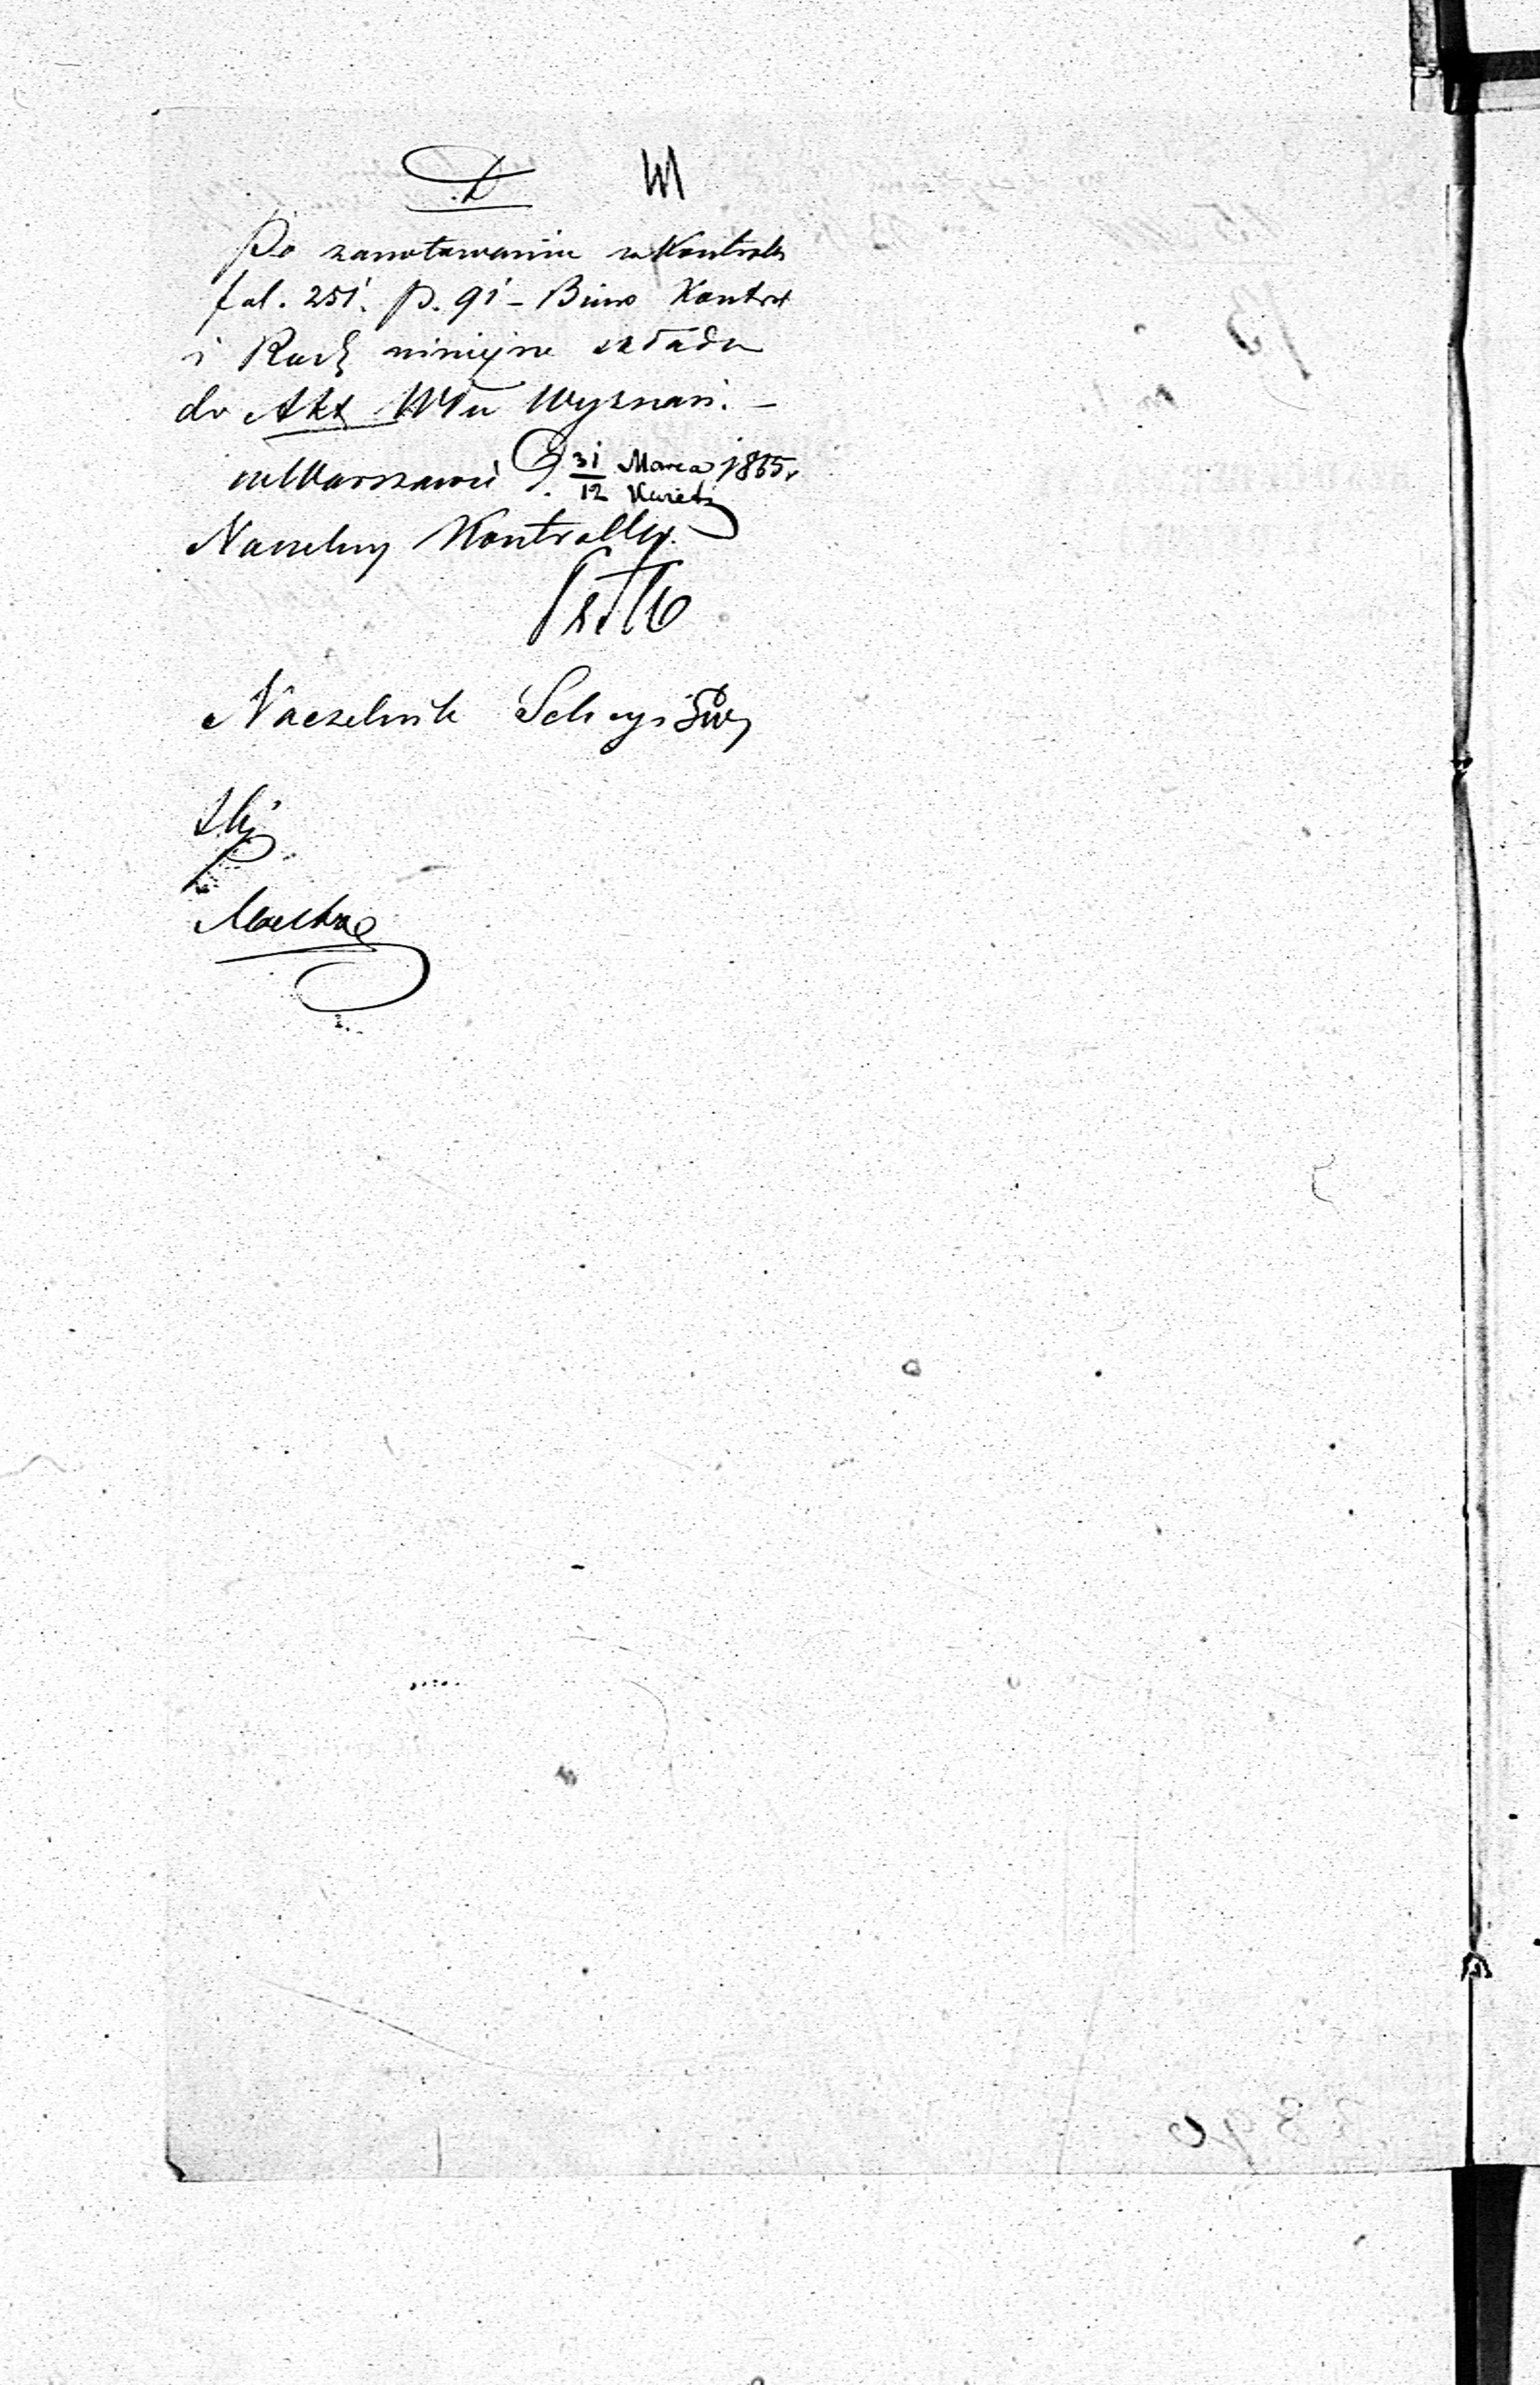 Po zanotowaniu w Kontroli
fol. 251. p. 91 – Biuro Kontrol
i Rach niniejsze składa
do Akt Włu Wyznań. –
w Warszawie D. 31/12 Marca/Kwiet 1865.
Naczelny Kontroller.
Naczelnik Sekcyi